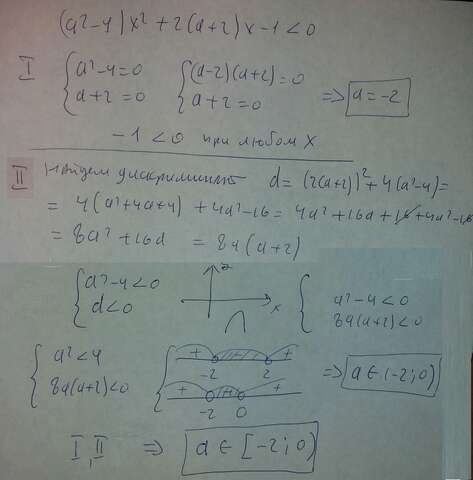 (a²-4)x²+2(a+2)x-1<0
I { a²-4=0 { (a-2)(a+2)=0
a+2=0 a+2=0 => a=-2
-1<0 при любом x
II Найдем дискриминант d=(2(a+2))²+4(a²-4)=
=4(a²+4a+4)+4a²-16=4a²+16a+16+4a²-16
=8a²+16a =8a(a+2)
{ a²-4<0 { a²-4<0
d<0 x 8a(a+2)<0
{ a²<4 { + -2 2 +
8a(a+2)<0 + -2 0 + => a∈(-2;0)
I, II => a∈[-2;0)